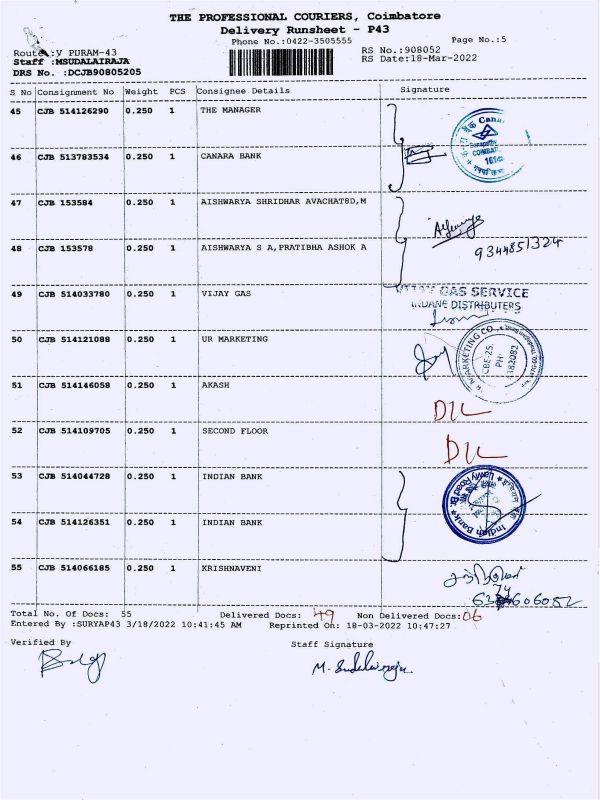 THE PROFESSIONAL COURIERS, Coimbatore
Delivery Runsheet - P43
Phone No.:0422-3505555
Page No.:5
Route :V PURAM-43
RS No.:908052
Staff :MSUDALAIRAJA
RS Date:18-Mar-2022
DRS No. :DCJB90805205
S No Consignment No Weight PCS Consignee Details Signature
45 CJB 514126290 0.250 1 THE MANAGER
46 CJB 513783534 0.250 1 CANARA BANK
47 CJB 153584 0.250 1 AISHWARYA SHRIDHAR AVACHAT8D,M
48 CJB 153578 0.250 1 AISHWARYA S A,PRATIBHA ASHOK A
9344851324
49 CJB 514033780 0.250 1 VIJAY GAS
GAS SERVICE
INDANE DISTRIBUTERS
50 CJB 514121088 0.250 1 UR MARKETING
MARKETING CO.,
51 CJB 514146058 0.250 1 AKASH
D/L
52 CJB 514109705 0.250 1 SECOND FLOOR
D/L
53 CJB 514044728 0.250 1 INDIAN BANK
Indian Bank
54 CJB 514126351 0.250 1 INDIAN BANK
55 CJB 514066185 0.250 1 KRISHNAVENI
Total No. Of Docs: 55 Delivered Docs: 49 Non Delivered Docs:06
Entered By :SURYAP43 3/18/2022 10:41:45 AM Reprinted On: 18-03-2022 10:47:27
Verified By Staff Signature
M. Sudalairaja